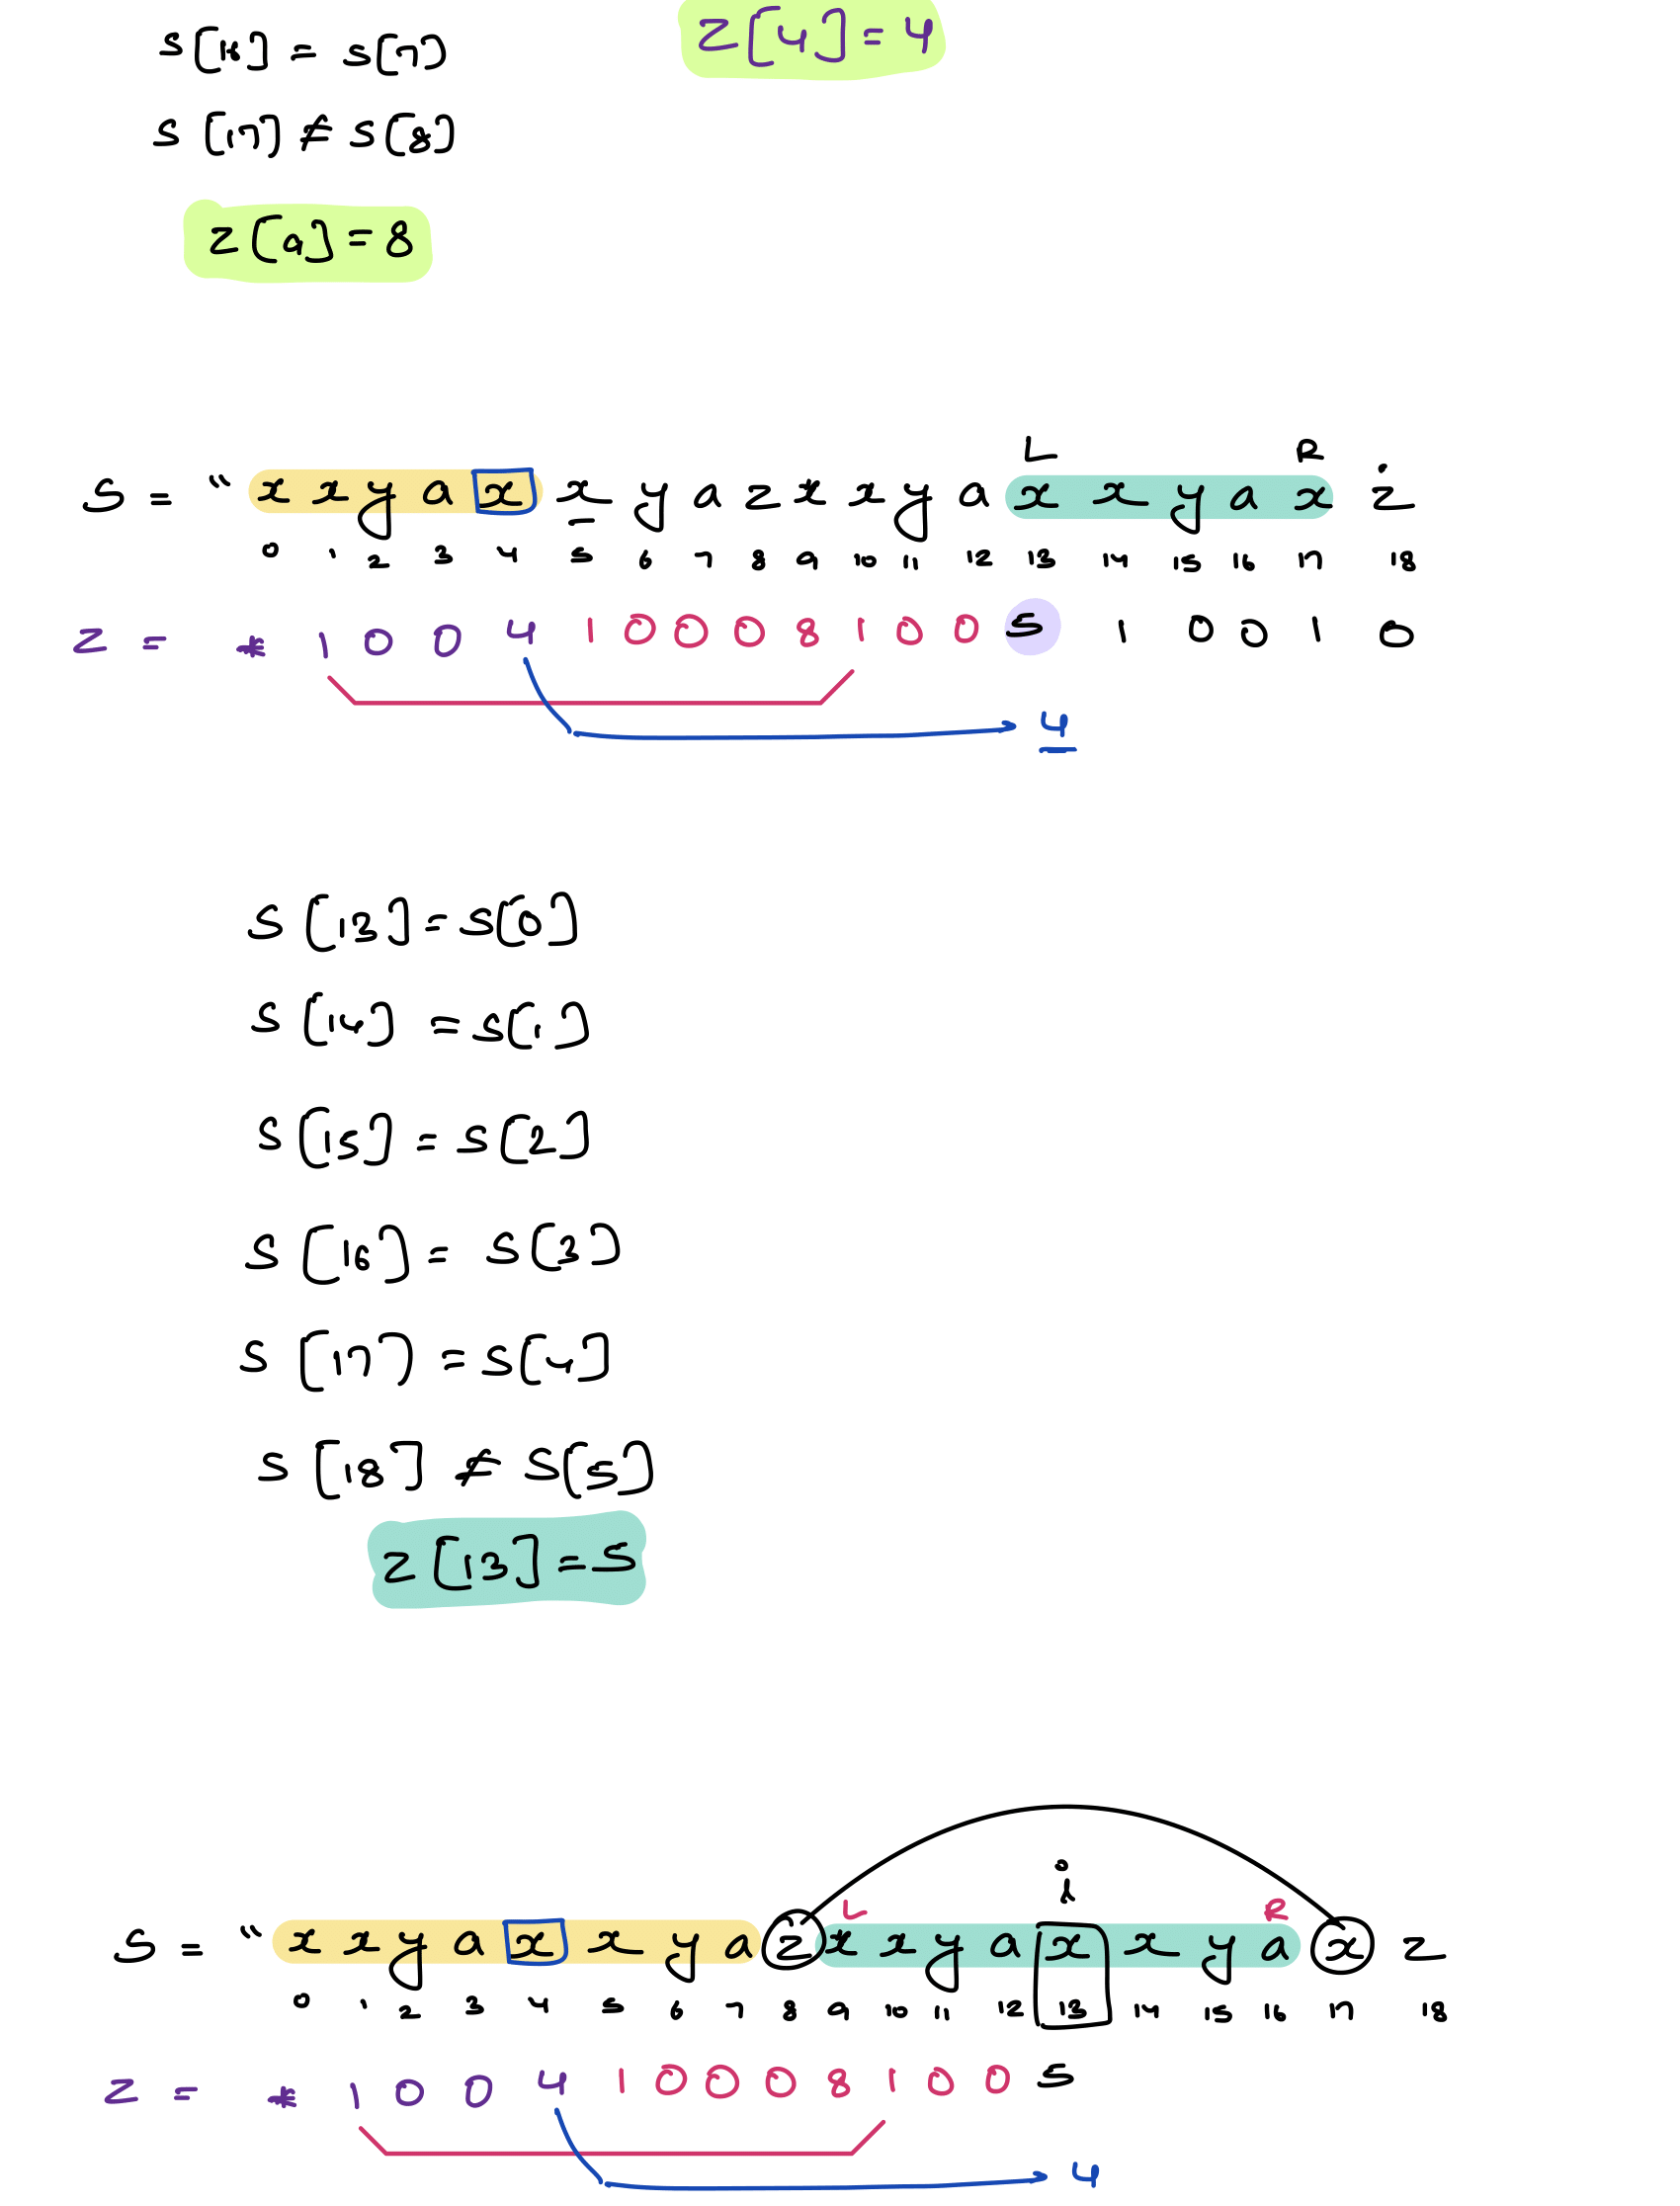 S[16] = S[7]
Z[4] = 4
S[17] ≠ S[8]
Z[9] = 8
L R
S = " x x y a x x y a z x x y a x x y a x z
0 1 2 3 4 5 6 7 8 9 10 11 12 13 14 15 16 17 18
Z = * 1 0 0 4 1 0 0 0 8 1 0 0 5 1 0 0 1 0
4
S[13] = S[0]
S[14] = S[1]
S[15] = S[2]
S[16] = S[3]
S[17] = S[4]
S[18] ≠ S[5]
Z[13] = 5
i
L R
S = " x x y a x x y a z x x y a x x y a x z
0 1 2 3 4 5 6 7 8 9 10 11 12 13 14 15 16 17 18
Z = * 1 0 0 4 1 0 0 0 8 1 0 0 5
4